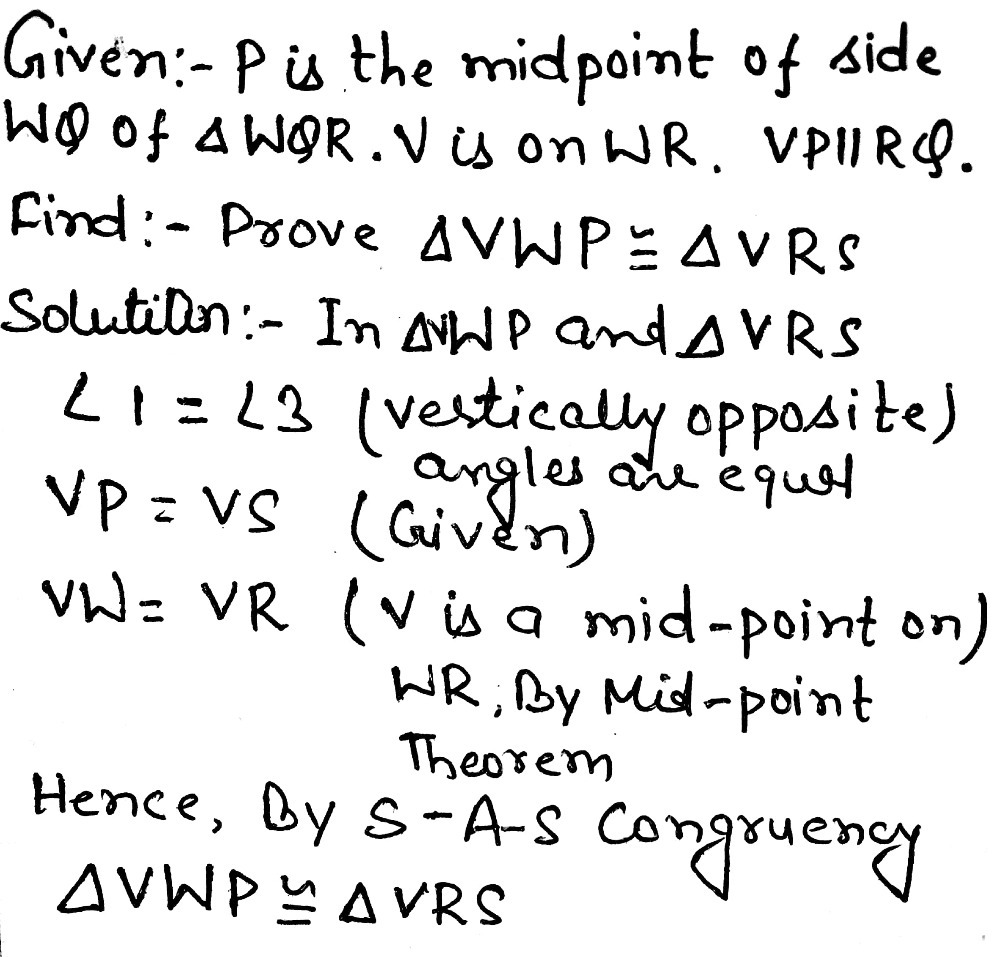 Given:- P is the midpoint of side
WQ of △WQR. V is on WR. VP||RQ.
Find:- Prove △VWP ≅ △VRS
Solution:- In △VWP and △VRS
∠1 = ∠3 (vertically opposite)
angles are equal
VP = VS (Given)
VW = VR (V is a mid-point on)
WR, By Mid-point
Theorem
Hence, By S-A-S Congruency
△VWP ≅ △VRS